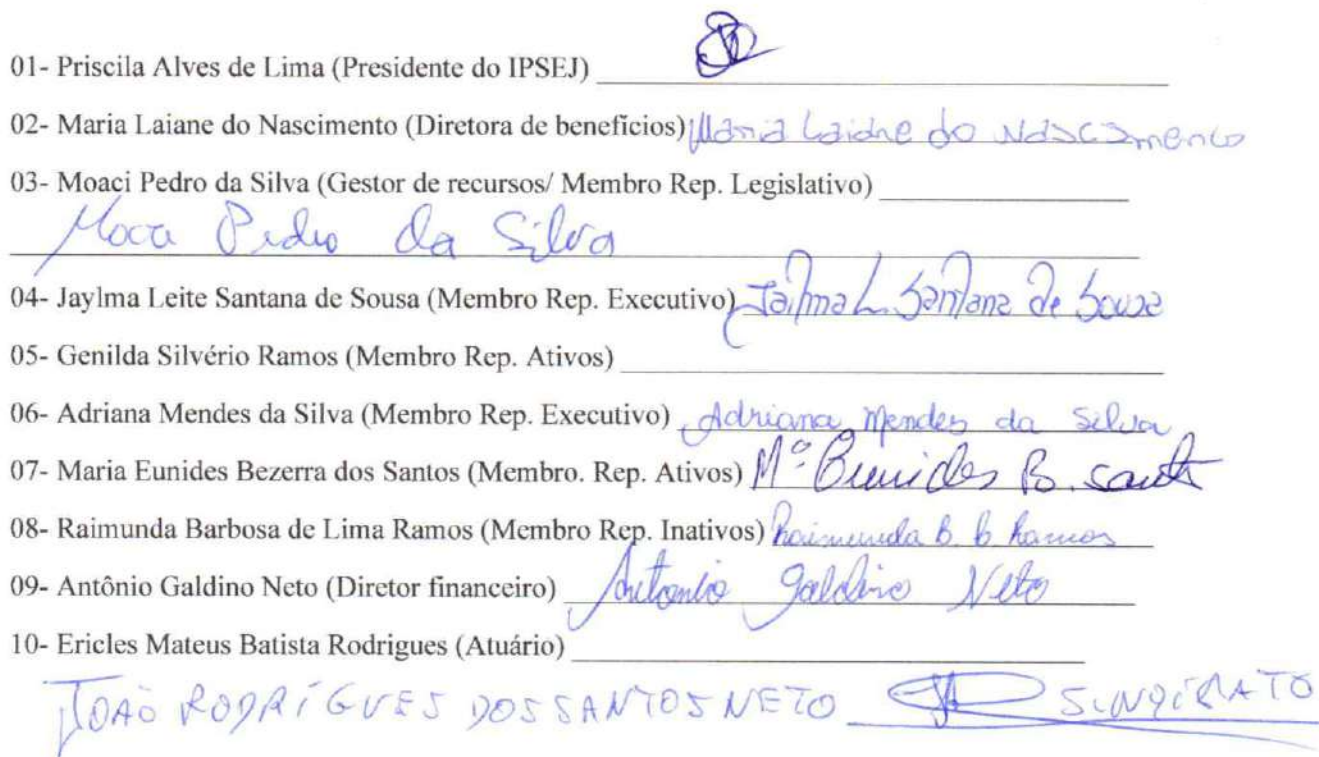 01- Priscila Alves de Lima (Presidente do IPSEJ)
02- Maria Laiane do Nascimento (Diretora de benefícios) Maria Laiane do Nascimento
03- Moaci Pedro da Silva (Gestor de recursos/ Membro Rep. Legislativo)
Moaci Pedro da Silva
04- Jaylma Leite Santana de Sousa (Membro Rep. Executivo) Jailma L. Santana de Sousa
05- Genilda Silvério Ramos (Membro Rep. Ativos)
06- Adriana Mendes da Silva (Membro Rep. Executivo) Adriana Mendes da Silva
07- Maria Eunides Bezerra dos Santos (Membro. Rep. Ativos) Mª Eunides B. Santos
08- Raimunda Barbosa de Lima Ramos (Membro Rep. Inativos) Raimunda B. Ramos
09- Antônio Galdino Neto (Diretor financeiro) Antonio Galdino Neto
10- Ericles Mateus Batista Rodrigues (Atuário)
JOÃO RODRÍGUES DOS SANTOS NETO SINDICATO